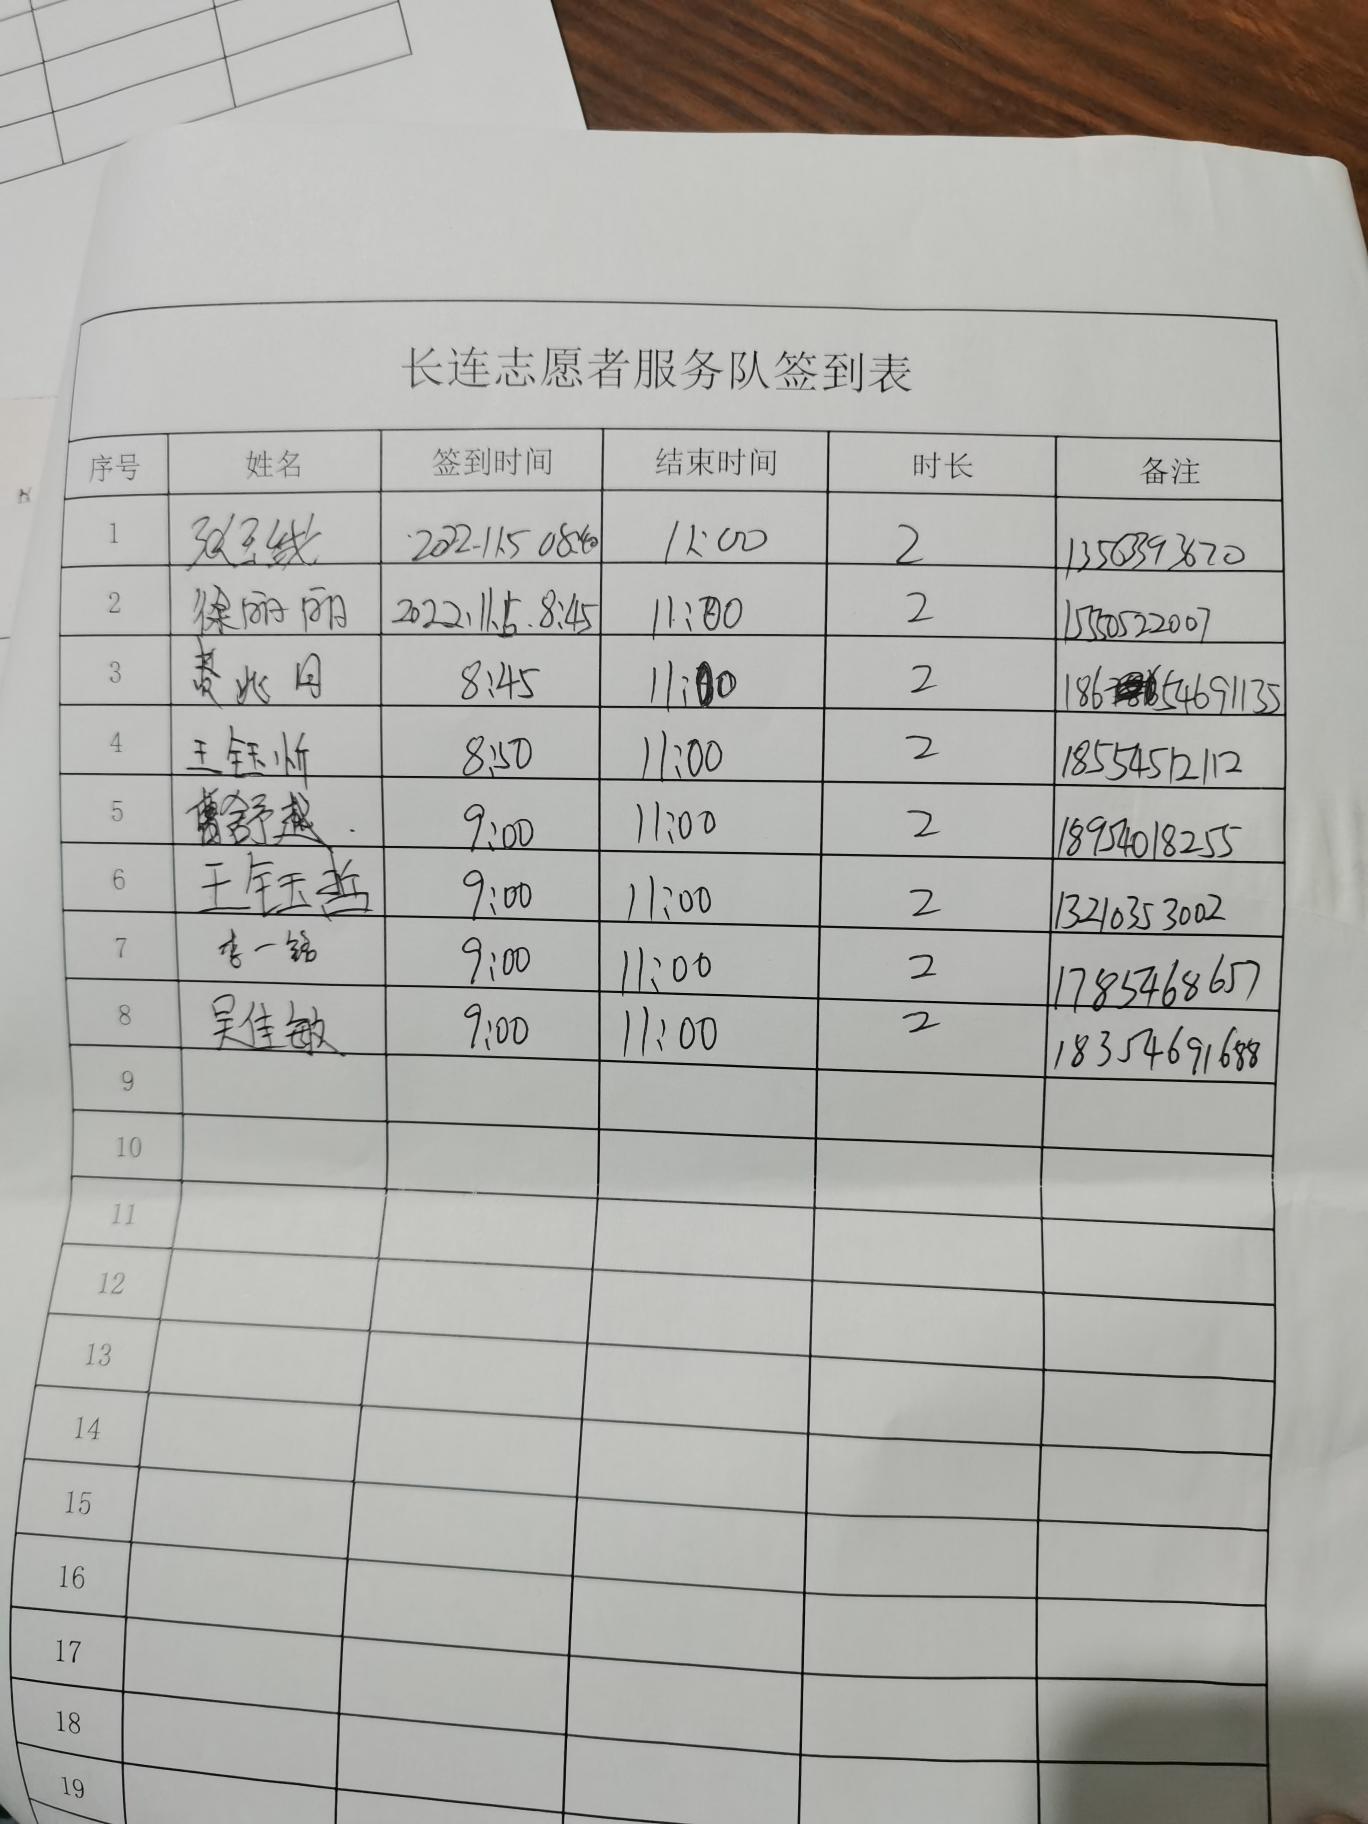 长连志愿者服务队签到表
序号 姓名 签到时间 结束时间 时长 备注
1 2022.11.5 08:40 11:00 2 13563393670
2 徐丽丽 2022.11.5. 8:45 11:00 2 15550522007
3 8:45 11:00 2 186 54691135
4 王钰忻 8:50 11:00 2 18554512112
5 曹舒越 9:00 11:00 2 18954018255
6 王钰哲 9:00 11:00 2 13210353002
7 李一铭 9:00 11:00 2 1785468657
8 吴佳敏 9:00 11:00 2 18354691688
9
10
11
12
13
14
15
16
17
18
19